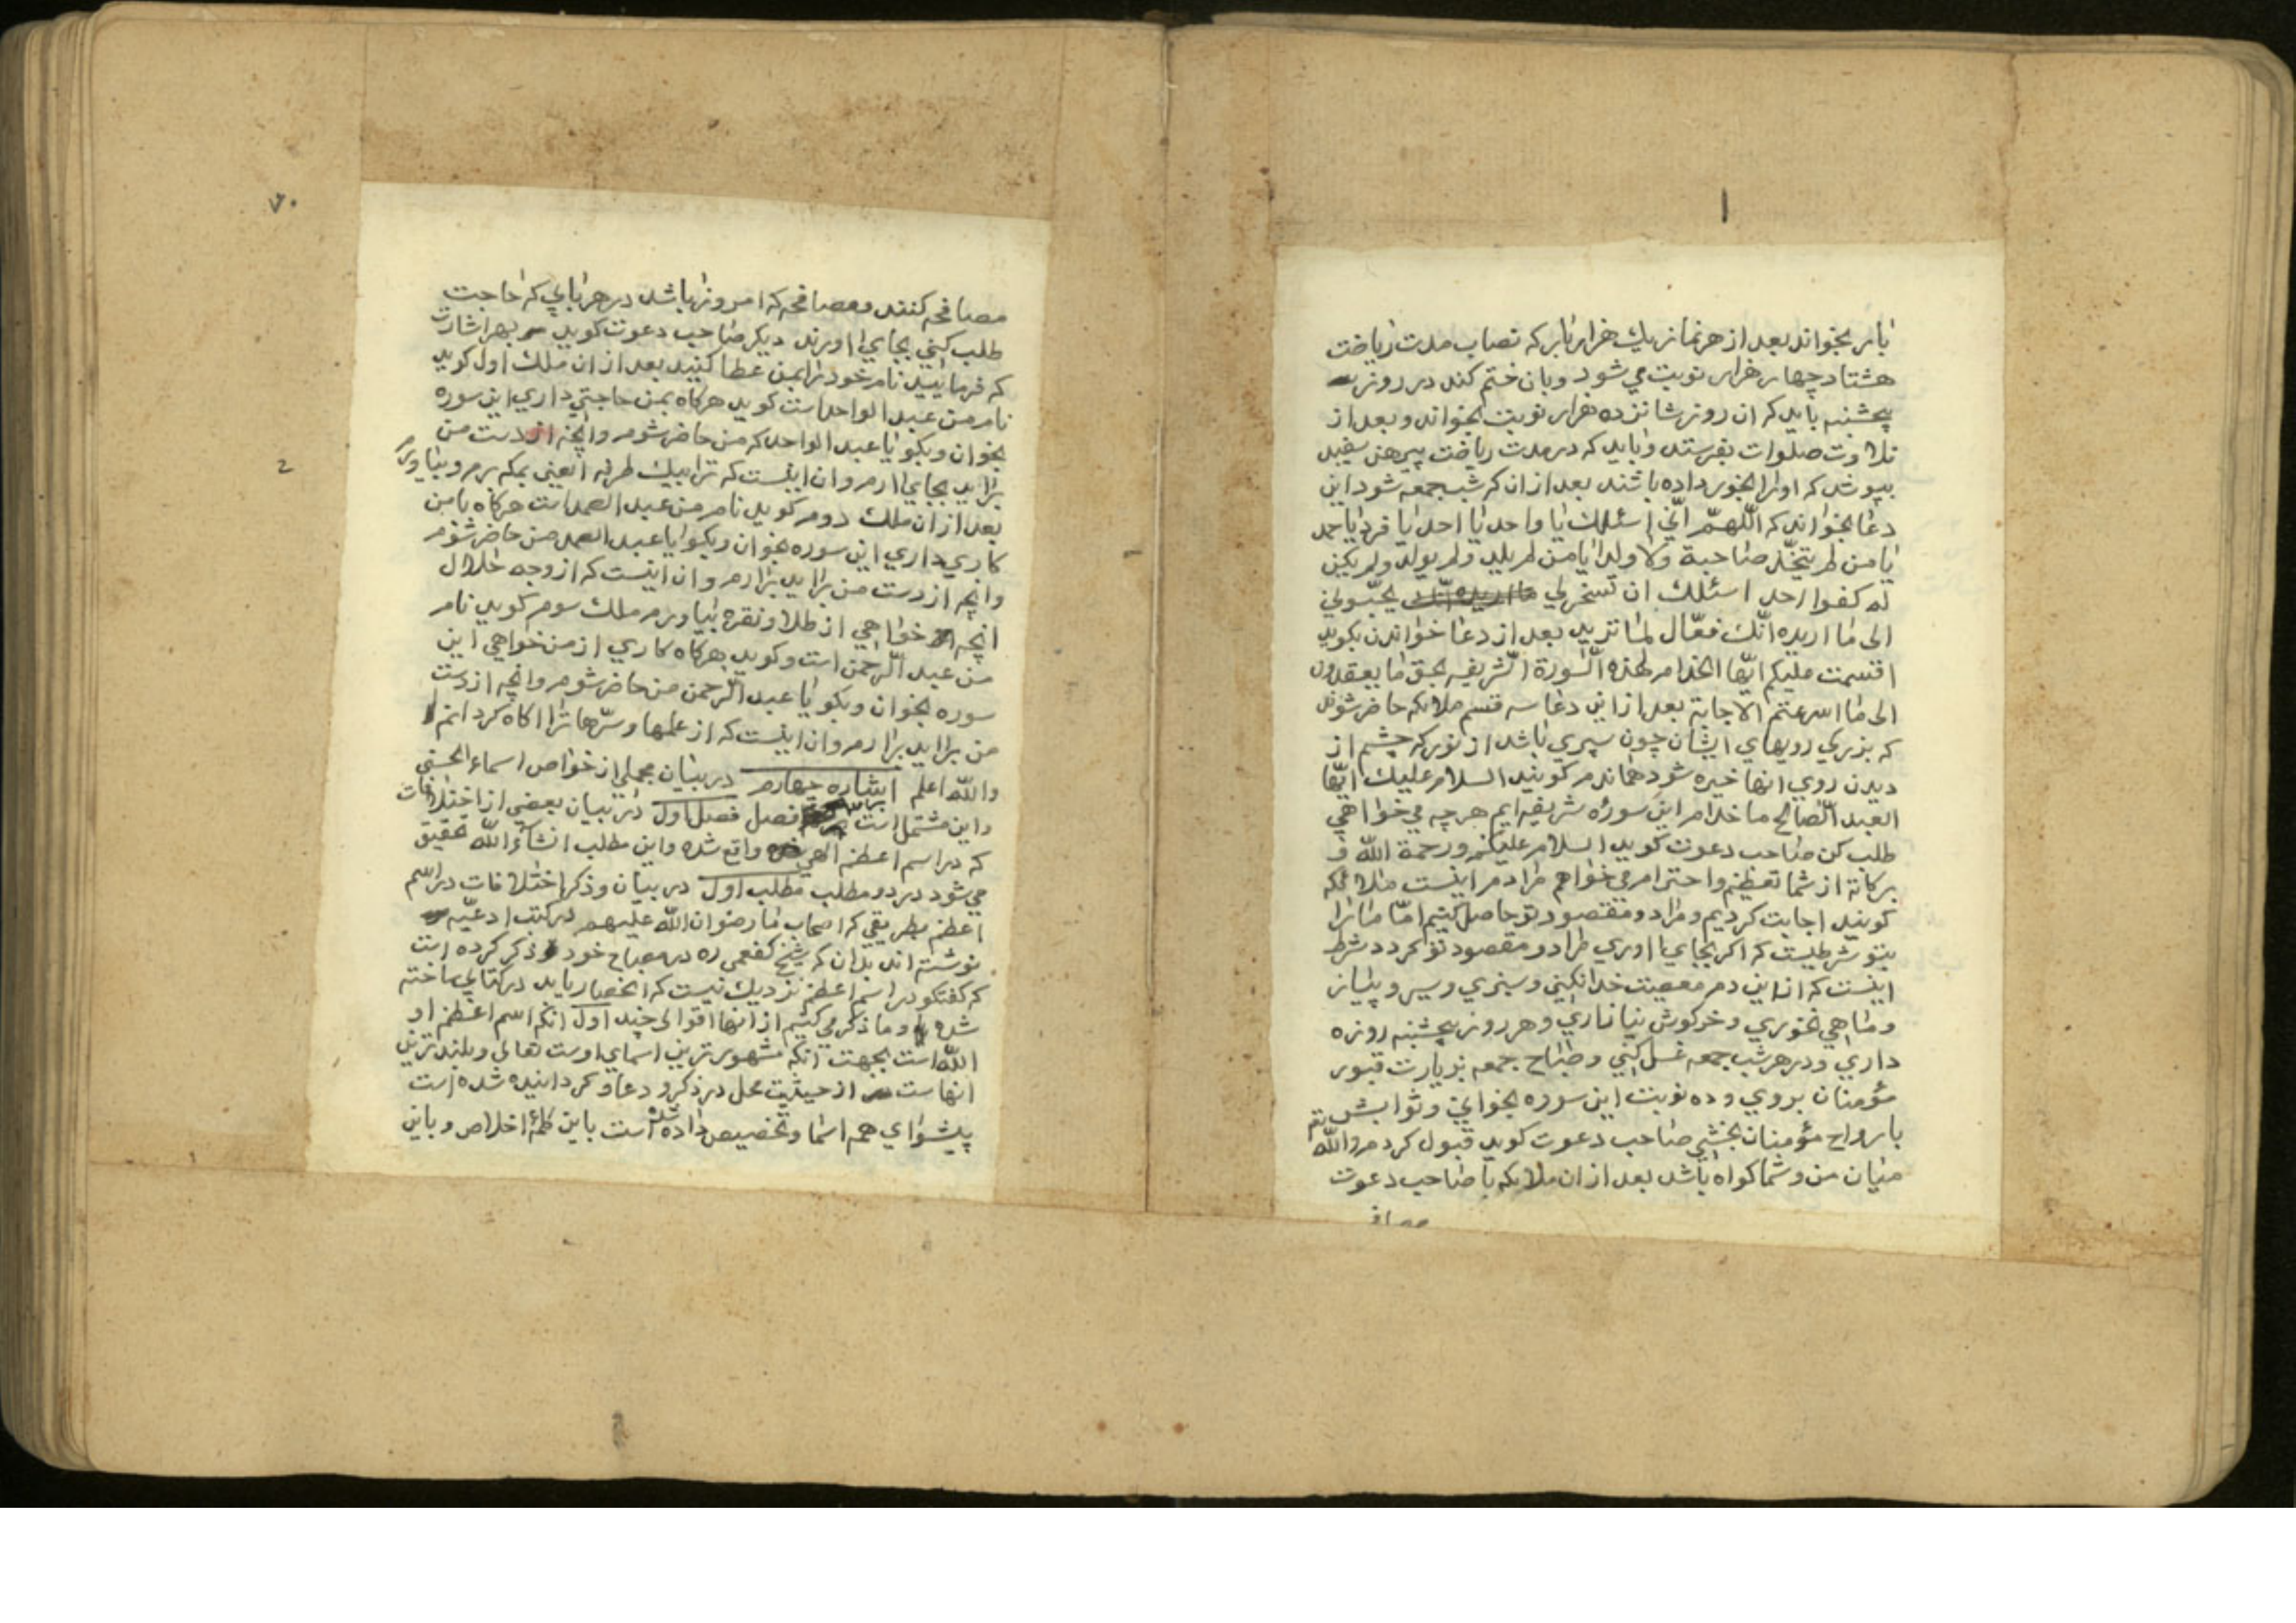 ۱
بار بخواند بعد از هر نماز یك هزار بار که نصاب مدت ریاضت
هشتاد چهار هزار نوبت می شود و بان ختم کند در روز
پنجشنبه باید که ان روز شانزده هزار نوبت بخواند و بعد از
تلاوت صلوات بفرستد و باید که در مدت ریاضت پیرهن سفید
بپوشد که اورا بخور داده باشند بعد از ان که شب جمعه شود این
دعا بخواند که اللهمّ انّي اسئلك یا واحد یا احد یا فرد یا صمد
یا من لم یتخّذ صاحبة ولا ولدا یا من لم یلد ولم یولد ولم یکن
له کفوا احد اسئلك ان تسخر لي ما اریده انّك یحبّوني
الی ما اریده انّك فعّال لما ترید بعد از دعا خواندن بکوید
اقسمت علیکم ایّها الخدام لهذه السّورة الشّریفه بحق ما یعقدون
الی ما اسرعتم الاجابة بعد از این دعا سه قسم ملایکه حاضر شوند
که بزرکي رویهاي ایشان چون سپري باشد از نور که چشم از
دیدن روي انها خیره شود هماندم کویند السلام علیك ایّها
العبد الصّالح ما خدام این سوره شریفه ایم هر چه مي خواهي
طلب کن صاحب دعوت کوید السلام علیکم ورحمة الله و
برکاته از شما تعظیم و احترام مي خواهم مرادم اینست ملائکه
کویند اجابت کردیم و مراد و مقصود تو حاصل کنیم امّا مارا
بتو شرطیست که اکر بجاي اوري مراد و مقصود تو کردد شرط
اینست که از این دم معصیت خدا نکني و سبزي و سیر و پیاز
و ماهي نخوري و خرکوش نیازاري و هر روز پنجشنبه روزه
داري و در هر شب جمعه غسل کني و صباح جمعه بزیارت قبور
مؤمنان بروي و ده نوبت این سوره بخواني و ثوابش
بارواح مؤمنان بخشي صاحب دعوت کوید قبول کردم والله
میان من و شما کواه باشد بعد از ان ملایکه با صاحب دعوت
مصافحه
۷۰
۲
مصافحه کنند و مصافحه که امروز باشد در هر بابي که حاجت
طلب کني بجاي اورند دیکر صاحب دعوت کوید بهر اشارت
که فرمائید نام خود را بمن عطا کنید بعد از ان ملك اول کوید
نام من عبد الواحد است کوید هرکاه بمن حاجتي داري این سوره
بخوان و بکو یا عبد الواحد که من حاضر شوم و انچه از دست من
براید بجاي ارم و ان اینست که ترا بیك طرفه العین بمکه برم و بیاورم
بعد از ان ملك دوم کوید نام من عبد الصمد است هرکاه با من
کاري داري این سوره بخوان و بکو یا عبد الصمد من حاضر شوم
وانچه از دست من براید برارم و ان اینست که از وجه حلال
انچه خواهي از طلا و نقره بیاورم ملك سوم کوید نام
من عبد الرّحمن است و کوید بهرکاه کاري از من خواهي این
سوره بخوان و بکو یا عبد الرّحمن من حاضر شوم و انچه از دست
من براید برارم و ان اینست که از علمها و سرّها ترا اکاه کردانم
والله اعلم اشاره چهارم در بیان مجملي از خواص اسماء الحسنی
و این مشتمل است فصل فصل اول در بیان بعضي از اختلافات
که در اسم اعظم الهي واقع شده و این مطلب انشاء الله تحقیق
مي شود در دو مطلب مطلب اول در بیان و ذکر اختلافات در اسم
اعظم بطریقي که اصحاب ما رضوان الله علیهم در کتب ادعیّه
نوشته اند بدان که شیخ کفعمي ره در مصباح خود ذکر کرده است
که کفتکو در اسم اعظم نزدیك نیست که انحصار یابد در کتابي ساخته
شده و ما ذکر مي کنیم از انها اقوالي چند اول انکه اسم اعظم او
الله است بجهت انکه مشهورترین اسماي اوست تعالی و بلندترین
انهاست از حیثیت محل در ذکر و دعا و کردانیده شده است
پیشواي همه اسما و تخصیص داده شده است باین کلمهٔ اخلاص و باین